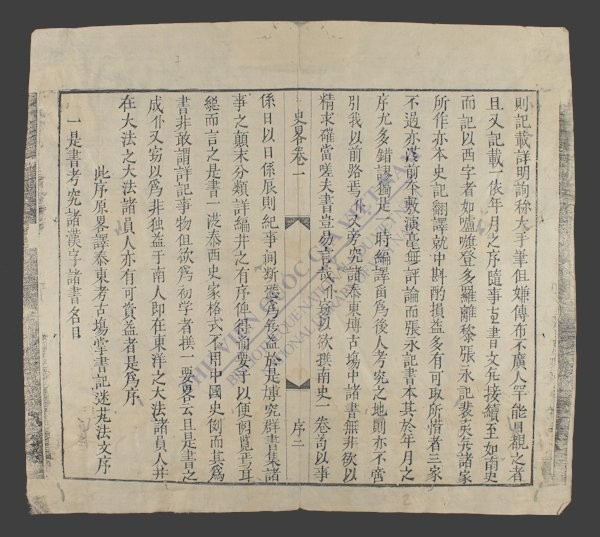 則記載詳明詢稱大手筆但嫌傳布不廣人罕能目覩之者
且又記載一依年月之序隨事直書日文無接續至如南史
而記以西字者如嚧嗷登多羅離黎張永記裴矣矣諸家
所作亦本史記翻譯就中斟酌損益多有可取所惜者三家
不過亦襲前本敷演毫無評論而張永記書本其於年月之
序尤多錯誤獨是一時編譯留為後人考究之地則亦不啻
引我以前路焉仆又旁究諸泰東博古塲中諸書無非欲以
精求確當嗟夫書豈易言哉仆竊以欲撰南史一卷苟以事
史畧卷一
序二
係日以日係辰則紀事間斷恐為無益於是博究群書集諸
事之顛末分類詳編井之有序俾得簡要于以便閱覽焉耳
總而言之是書一從泰西史家格式不用中國史例而其為
書非敢謂詳記事物但欲為初學者撰一要畧云且是書之
成仆又竊以為非独益于南人即在東洋之大法諸員人并
在大法之大法諸員人亦有可資益者是為序
此序原畧譯泰東考古塲堂書記迷芄法文序
一是書考究諸漢字諸書名目
THƯ VIỆN QUỐC GIA VIỆT NAM